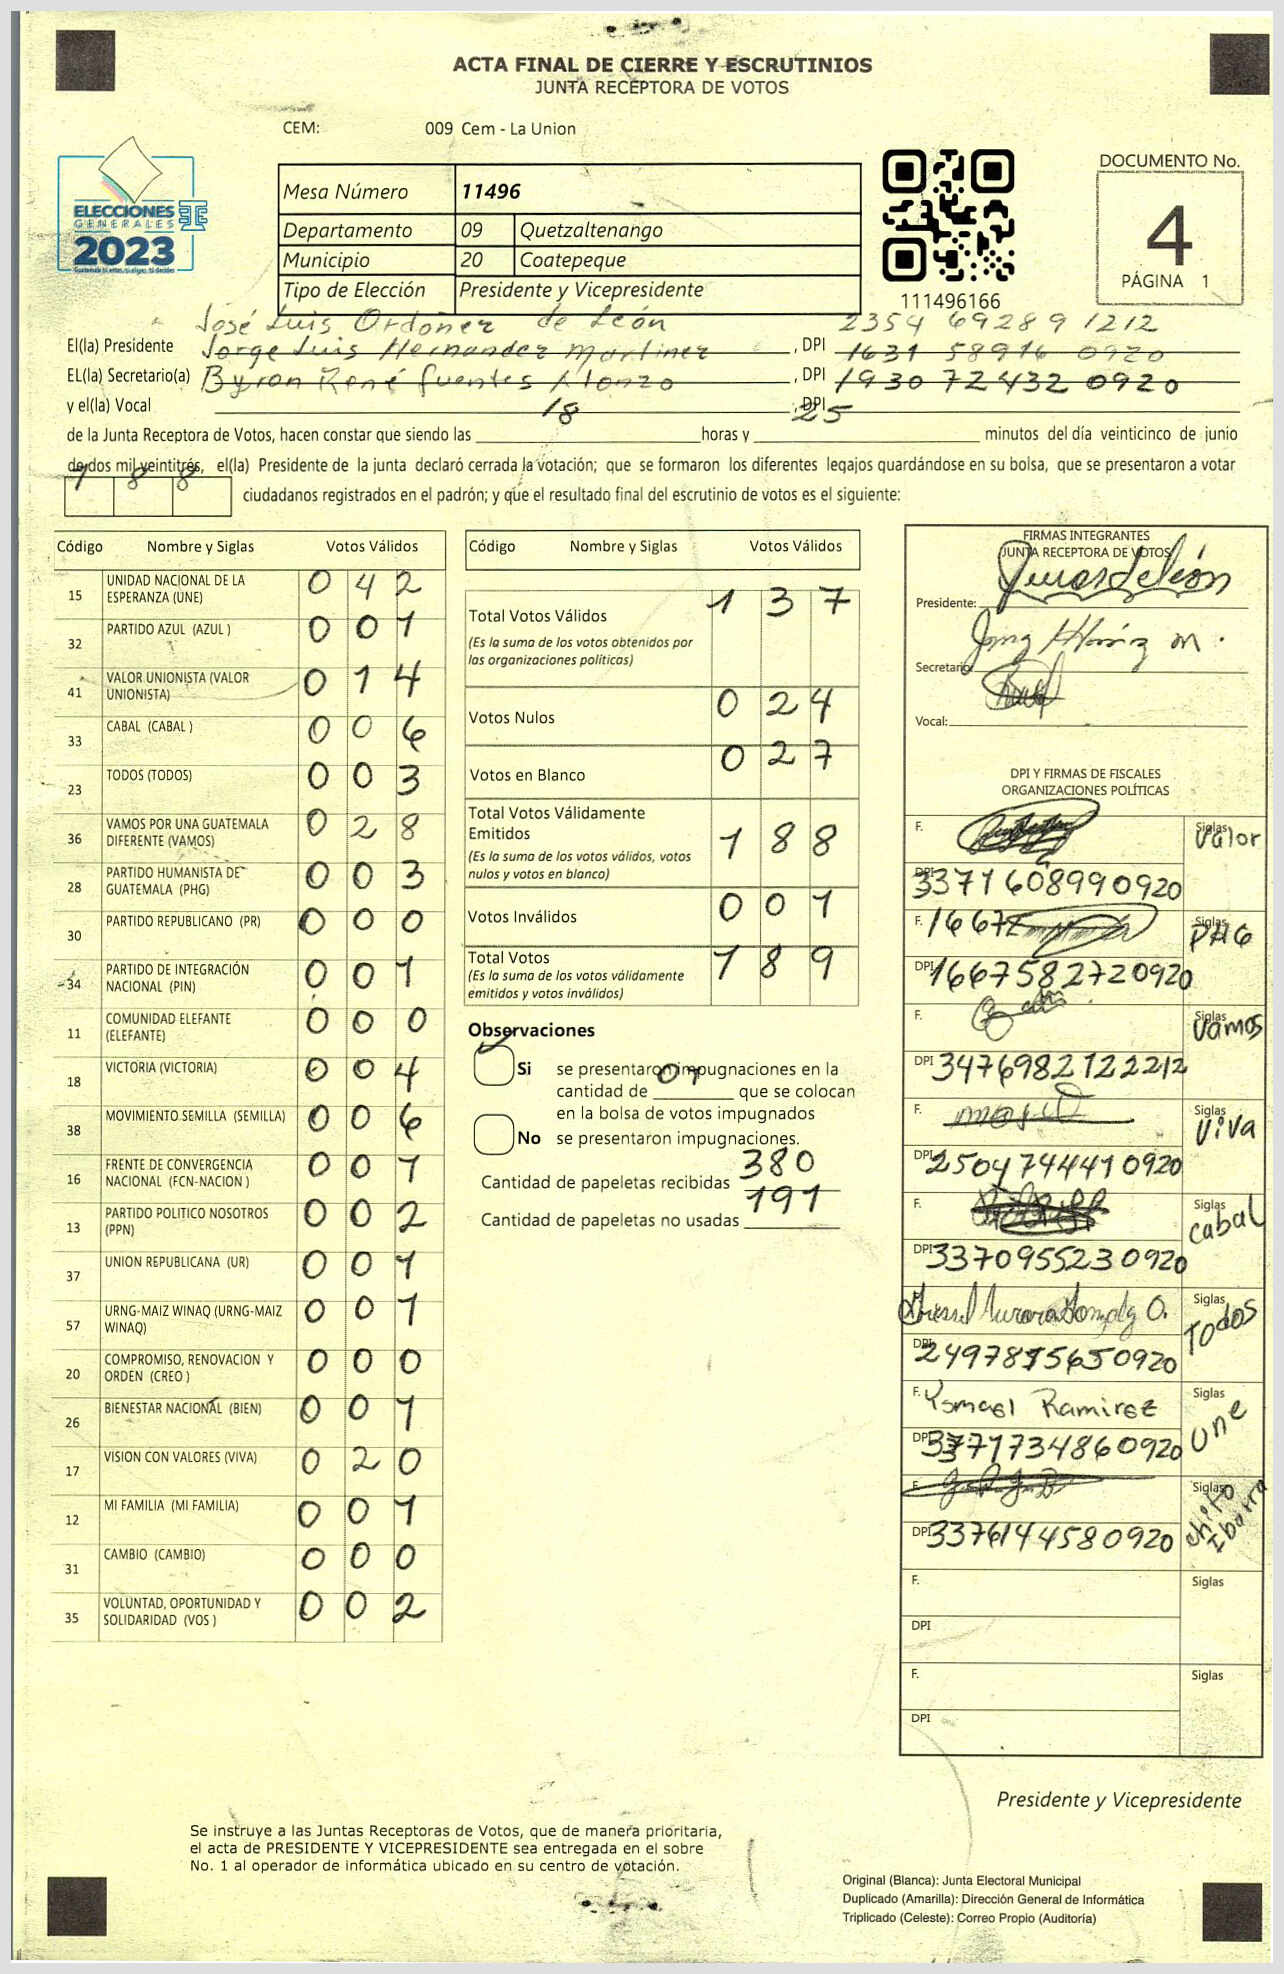 ACTA FINAL DE CIERRE Y ESCRUTINIOS
JUNTA RECEPTORA DE VOTOS
CEM: 009 Cem - La Union
ELECCIONES
GENERALES
2023
Mesa Número 11496
Departamento 09 Quetzaltenango
Municipio 20 Coatepeque
Tipo de Elección Presidente y Vicepresidente
111496166
DOCUMENTO No.
4
PÁGINA 1
José Luis Ordoñez de León 2354 69289 1212
El(la) Presidente Jorge Luis Hernandez Martinez, DPI 1631 58916 0920
EL(la) Secretario(a) Byron René fuentes Alonzo, DPI 1930 72432 0920
y el(la) Vocal , DPI
de la Junta Receptora de Votos, hacen constar que siendo las 18 horas y 25 minutos del día veinticinco de junio
de dos mil veintitrés, el(la) Presidente de la junta declaró cerrada la votación; que se formaron los diferentes legajos guardándose en su bolsa, que se presentaron a votar
188 ciudadanos registrados en el padrón; y que el resultado final del escrutinio de votos es el siguiente:
Código Nombre y Siglas Votos Válidos
15 UNIDAD NACIONAL DE LA ESPERANZA (UNE) 042
32 PARTIDO AZUL (AZUL ) 001
41 VALOR UNIONISTA (VALOR UNIONISTA) 014
33 CABAL (CABAL ) 006
23 TODOS (TODOS) 003
36 VAMOS POR UNA GUATEMALA DIFERENTE (VAMOS) 028
28 PARTIDO HUMANISTA DE GUATEMALA (PHG) 003
30 PARTIDO REPUBLICANO (PR) 000
34 PARTIDO DE INTEGRACIÓN NACIONAL (PIN) 001
11 COMUNIDAD ELEFANTE (ELEFANTE) 000
18 VICTORIA (VICTORIA) 004
38 MOVIMIENTO SEMILLA (SEMILLA) 006
16 FRENTE DE CONVERGENCIA NACIONAL (FCN-NACION ) 001
13 PARTIDO POLITICO NOSOTROS (PPN) 002
37 UNION REPUBLICANA (UR) 001
57 URNG-MAIZ WINAQ (URNG-MAIZ WINAQ) 001
20 COMPROMISO, RENOVACION Y ORDEN (CREO ) 000
26 BIENESTAR NACIONAL (BIEN) 001
17 VISION CON VALORES (VIVA) 020
12 MI FAMILIA (MI FAMILIA) 001
31 CAMBIO (CAMBIO) 000
35 VOLUNTAD, OPORTUNIDAD Y SOLIDARIDAD (VOS ) 002
Código Nombre y Siglas Votos Válidos
Total Votos Válidos 137
(Es la suma de los votos obtenidos por las organizaciones políticas)
Votos Nulos 024
Votos en Blanco 027
Total Votos Válidamente Emitidos 188
(Es la suma de los votos válidos, votos nulos y votos en blanco)
Votos Inválidos 001
Total Votos 189
(Es la suma de los votos válidamente emitidos y votos inválidos)
Observaciones
Si se presentaron impugnaciones en la
cantidad de 01 que se colocan
en la bolsa de votos impugnados
No se presentaron impugnaciones.
Cantidad de papeletas recibidas 380
Cantidad de papeletas no usadas 191
FIRMAS INTEGRANTES
JUNTA RECEPTORA DE VOTOS
Presidente:
Secretario:
Vocal:
DPI Y FIRMAS DE FISCALES
ORGANIZACIONES POLÍTICAS
F. Siglas Valor
DPI 3371608990920
F. 1667 Siglas PHG
DPI 1667582720920
F. Siglas Vamos
DPI 3476982122212
F. Siglas Viva
DPI 2504744410920
F. Siglas Cabal
DPI 3370955230920
F. Siglas Todos
DPI 2497815650920
F. Ysmael Ramirez Siglas Une
DPI 3371734860920
F. Siglas chito Ibarra
DPI 3376144580920
F. Siglas
DPI
F. Siglas
DPI
Presidente y Vicepresidente
Se instruye a las Juntas Receptoras de Votos, que de manera prioritaria,
el acta de PRESIDENTE Y VICEPRESIDENTE sea entregada en el sobre
No. 1 al operador de informática ubicado en su centro de votación.
Original (Blanca): Junta Electoral Municipal
Duplicado (Amarilla): Dirección General de Informática
Triplicado (Celeste): Correo Propio (Auditoría)